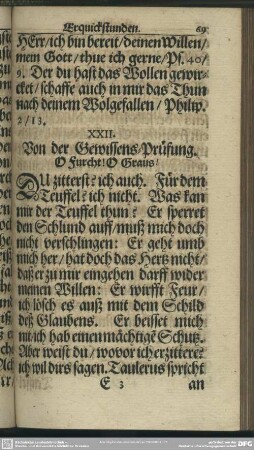 Erquickstunden. 69
HErr/ich bin bereit/deinen Willen/
mein Gott/thue ich gerne/Ps. 40/
9. Der du hast das Wollen gewir-
cket/schaffe auch in mir das Thun
nach deinem Wolgefallen/Philip.
2/13.
XXII.
Von der Gewissens/Prüfung.
O Furcht! O Graus!
DU zitterst? ich auch. Für dem
Teuffel? ich nicht. Was kan
mir der Teuffel thun? Er sperret
den Schlund auff/muß mich doch
nicht verschlingen: Er geht umb
mich her/hat doch das Hertz nicht/
daß er zu mir eingehen darff wider
meinen Willen: Er wirfft Feur/
ich lösch es auß mit dem Schild
deß Glaubens. Er beisset mich
nit/ich hab einen mächtigē Schutz.
Aber weist du/wovor ich erzittere?
ich wil dirs sagen. Taulerus spricht
E 3 an